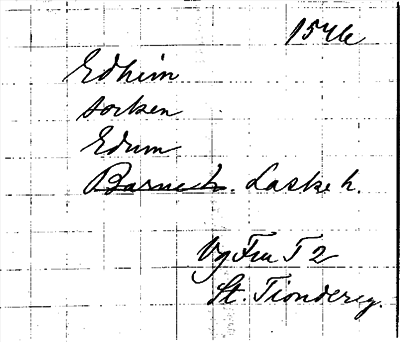 1546
Edhem
socken
Edum
Barne h. Laske h.
Vg Fru T 2
St. Tionderg.